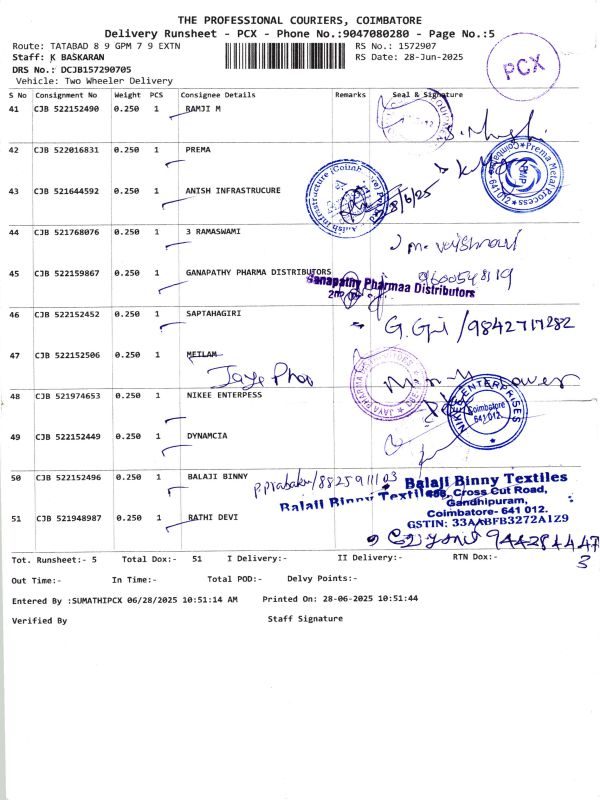 THE PROFESSIONAL COURIERS, COIMBATORE
Delivery Runsheet - PCX - Phone No.:9047080280 - Page No.:5
Route: TATABAD 8 9 GPM 7 9 EXTN
RS No.: 1572907
Staff: K BASKARAN
RS Date: 28-Jun-2025
DRS No.: DCJB157290705
Vehicle: Two Wheeler Delivery
PCX
S No Consignment No Weight PCS Consignee Details Remarks Seal & Signature
41 CJB 522152490 0.250 1 RAMJI M
42 CJB 522016831 0.250 1 PREMA
Prema Metal Process
Coimbatore
641 012
PMP
43 CJB 521644592 0.250 1 ANISH INFRASTRUCURE
44 CJB 521768076 0.250 1 3 RAMASWAMI
45 CJB 522159867 0.250 1 GANAPATHY PHARMA DISTRIBUTORS
Ganapathy Pharmaa Distributors
46 CJB 522152452 0.250 1 SAPTAHAGIRI
/9842717282
47 CJB 522152506 0.250 1 MEILAM
48 CJB 521974653 0.250 1 NIKEE ENTERPESS
NIKEE ENTERPRISES
Coimbatore
641 012
49 CJB 522152449 0.250 1 DYNAMCIA
50 CJB 522152496 0.250 1 BALAJI BINNY
Balaji Binny Textiles
Balaji Binny Textiles
Cross Cut Road,
Gandhipuram,
Coimbatore- 641 012.
GSTIN: 33AABFB3272A1Z9
51 CJB 521948987 0.250 1 RATHI DEVI
Tot. Runsheet:- 5 Total Dox:- 51 I Delivery:- II Delivery:- RTN Dox:-
Out Time:- In Time:- Total POD:- Delvy Points:-
Entered By :SUMATHIPCX 06/28/2025 10:51:14 AM Printed On: 28-06-2025 10:51:44
Verified By Staff Signature